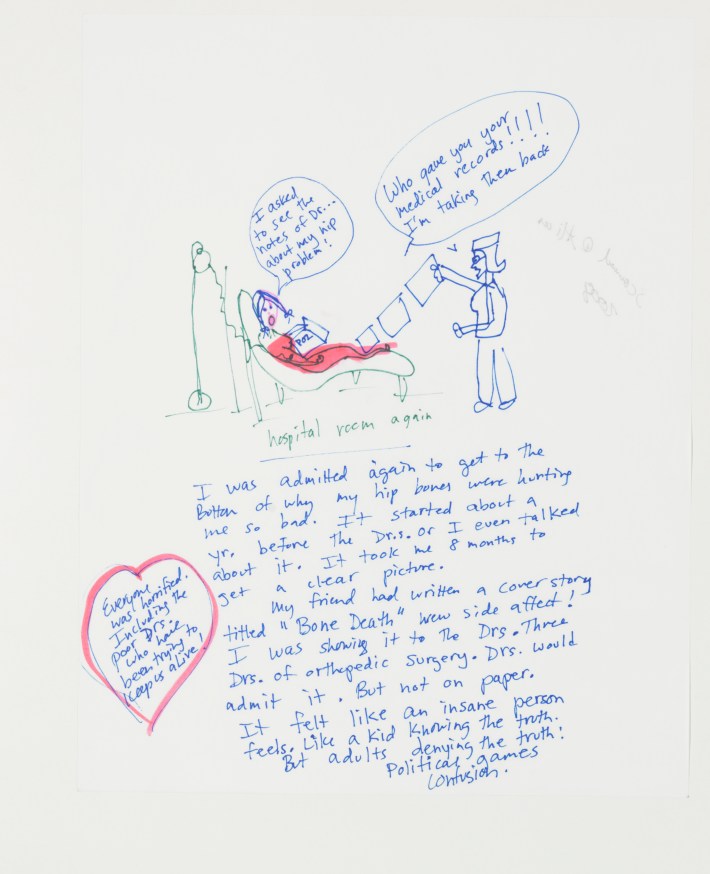 I asked
to see the
notes of Dr...
about my hip
problem!
Who gave you your
medical records!!!!
I'm taking them back
POZ
hospital room again
I was admitted again to get to the
Bottem of why my hip bones were hurting
me so bad. It started about a
yr. before the Dr.s. or I even talked
about it. It took me 8 months to
get a clear picture.
My friend had written a cover story
titled "Bone Death" new side affect!
I was showing it to the Drs. Three
Drs. of orthepedic surgery. Drs. would
admit it. But not on paper.
It felt like an insane person
feels. Like a kid knowing the truth.
But adults denying the truth!
Political games
confusion.
Everyone
was horrified.
Including the
poor Drs.
who have
been trying to
keep us alive!